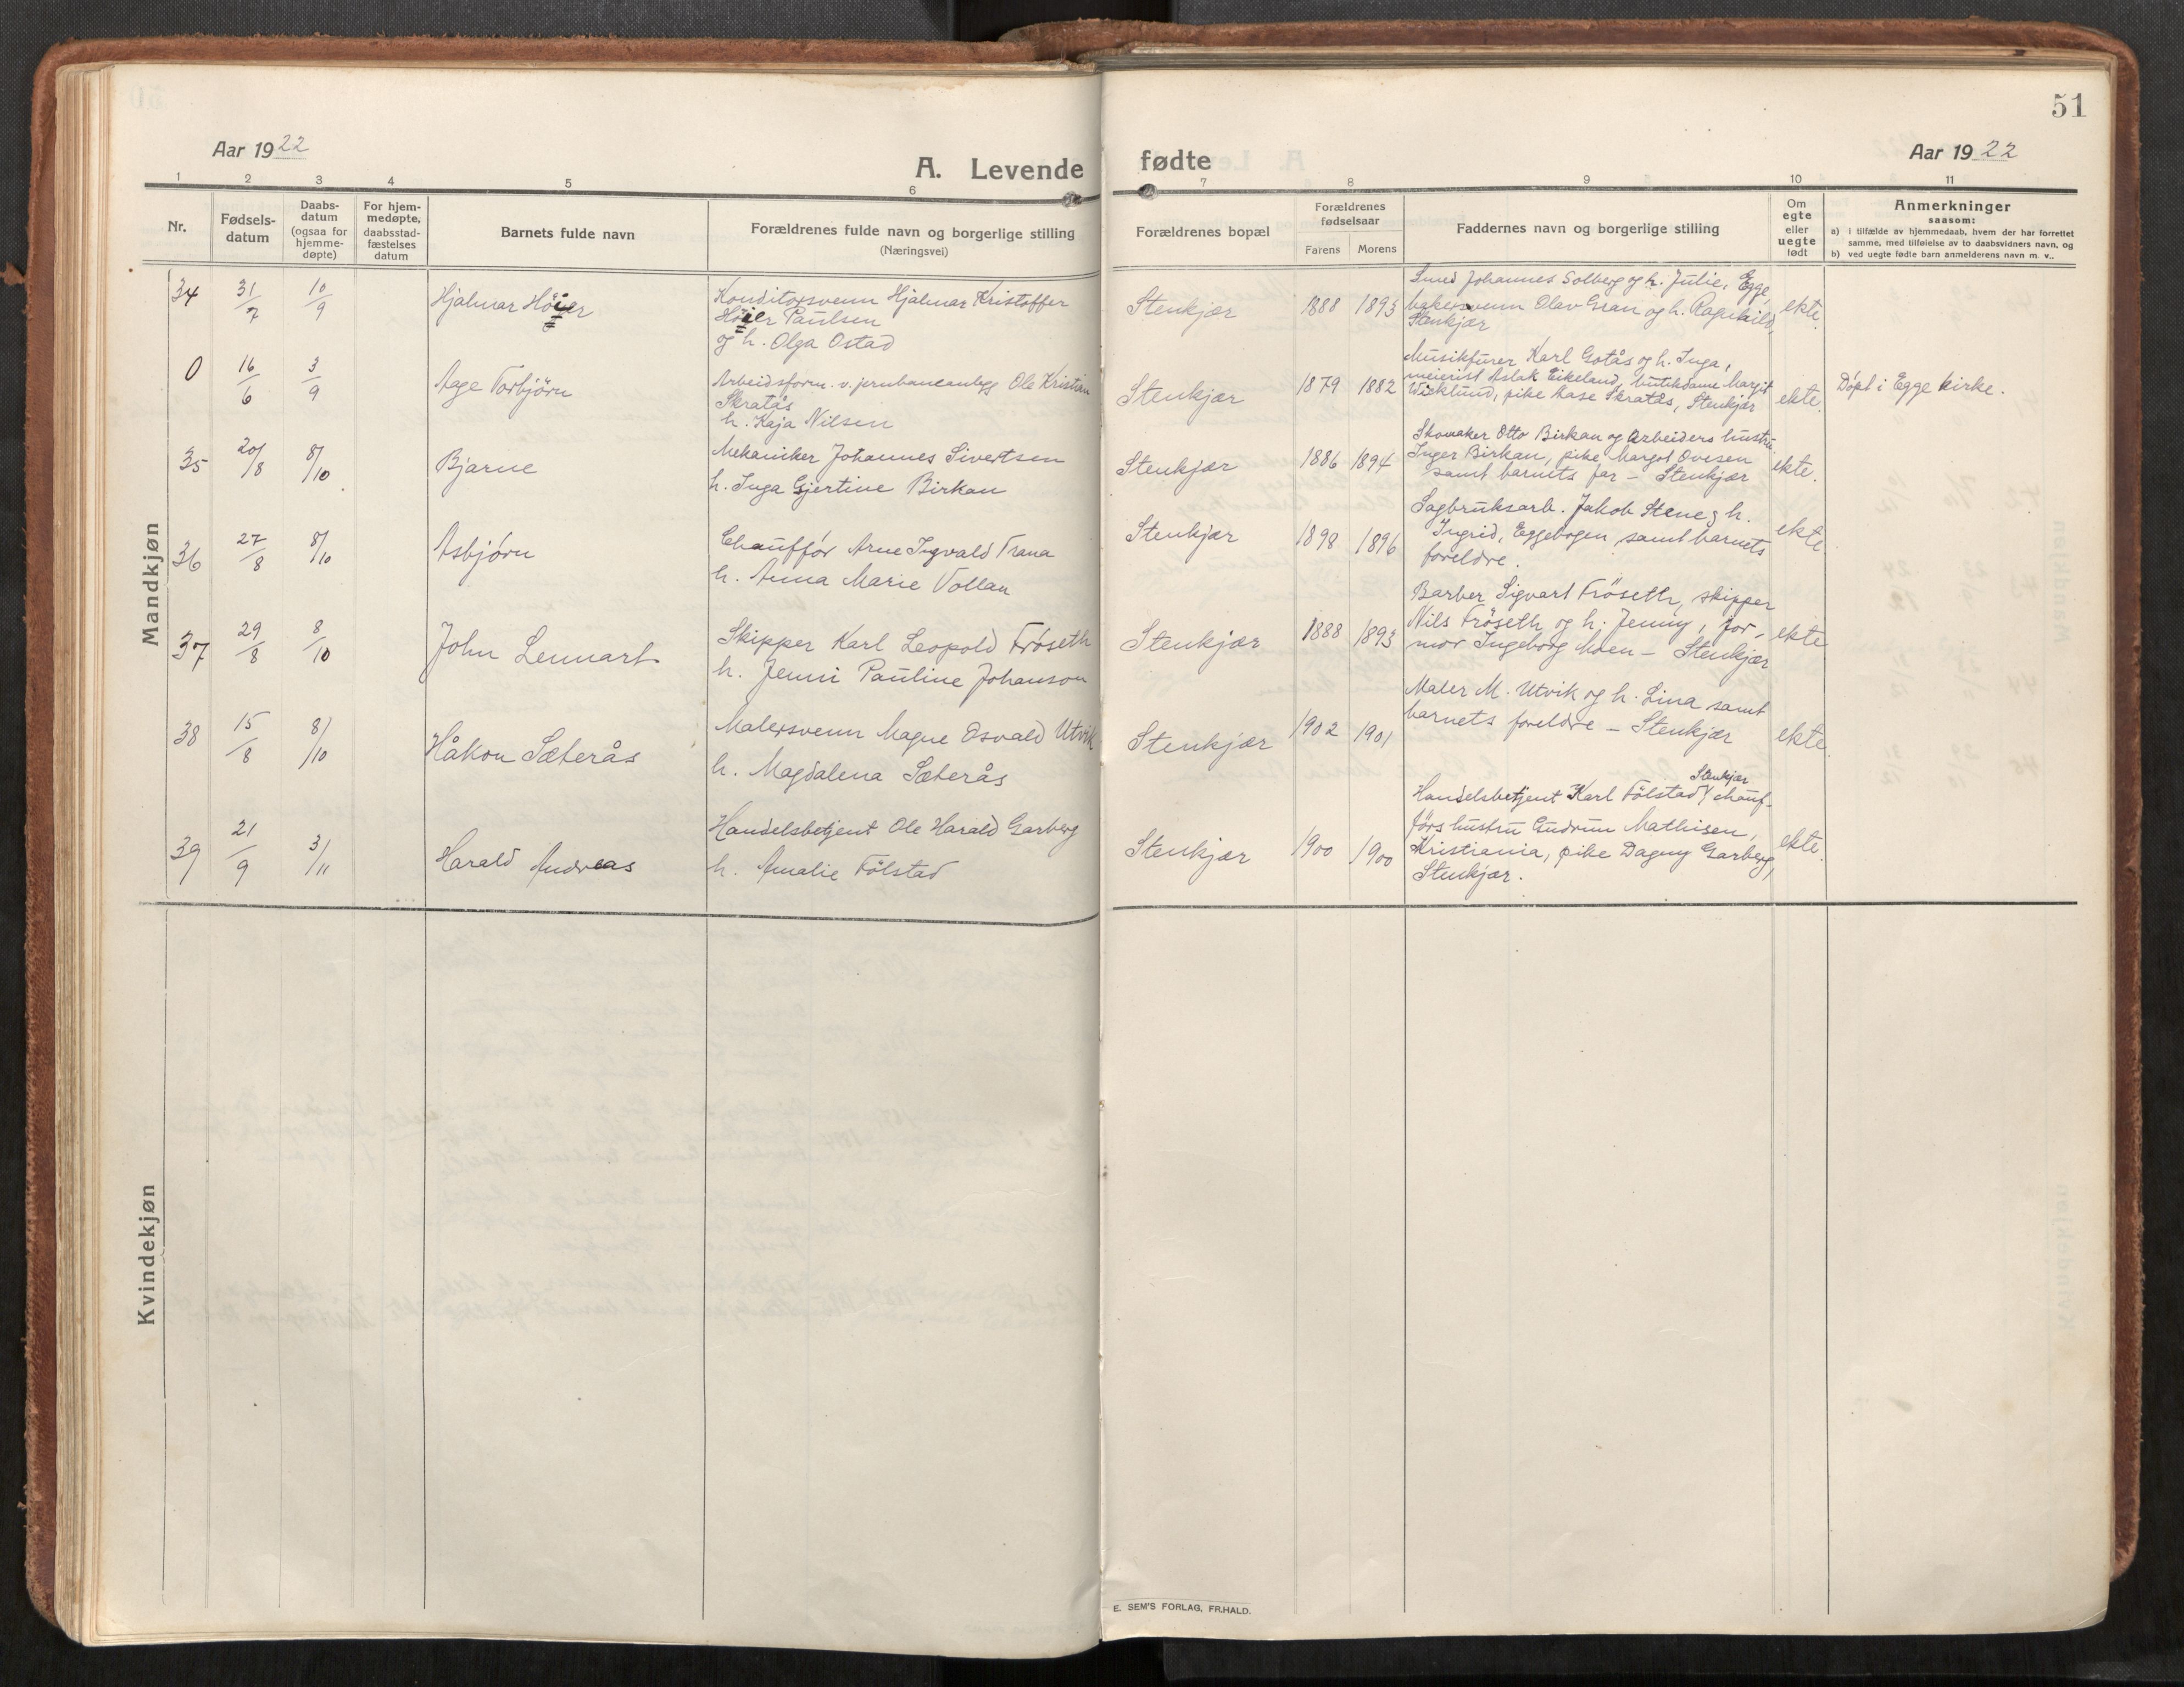 51
Aar 1922
A. Levende fødte
Aar 1922
1 2 3 4 5 6 7 8 9 10 11
Nr.
Fødselsdatum
Daabsdatum (ogsaa for hjemmedøpte)
For hjemmedøpte, daabsstadfæstelses datum
Barnets fulde navn
Forældrenes fulde navn og borgerlige stilling
(Næringsvei)
Forældrenes bopæl
Forældrenes fødselsaar
Farens Morens
Faddernes navn og borgerlige stilling
Om egte eller uegte født
Anmerkninger
saasom:
a) i tilfælde av hjemmedaab, hvem der har forrettet
samme, med tilføielse av to daabsvidners navn, og
b) ved uegte fødte barn anmelderens navn m. v..
Mandkjøn
34 31/7 10/9 Hjalmar Höier
Konditorsvenn Hjalmar Kristoffer
Höier Paulsen
og h. Olga Ostad
Stenkjær 1888 1893
Smed Johannes Solberg og h. Julie, Egge,
bakersvenn Olav Gran og h. Ragnhild,
Stenkjær
ekte.
0 16/6 3/9 Aage Torbjörn
Arbeidsform. v. jernbaneanlegg Ole Kristian
Skratås
h. Kaja Nilsen
Stenkjær 1879 1882
Musikfurer Karl Gotås og h. Inga,
meierist Aslak Eikeland, butikdame Margit
Wicklund, pike Aase Skratås, Stenkjær
ekte.
Döpt i Egge kirke.
35 20/8 8/10 Bjarne
Mekaniker Johannes Sivertsen
h. Inga Gjertine Birkan
Stenkjær 1886 1894
Skomaker Otto Birkan og Arbeiders hustru
Inger Birkan, pike Margot Ovesen
samt barnets far - Stenkjær
ekte.
36 27/8 8/10 Asbjørn
Chauffør Arne Ingvald Trana
h. Anna Marie Vollan
Stenkjær 1898 1896
Sagbruksarb. Jakob Stene og h.
Ingrid, Eggebogen samt barnets
foreldre.
ekte.
37 29/8 8/10 John Lennart
Skipper Karl Leopold Frøseth
h. Jenni Pauline Johanson
Stenkjær 1888 1893
Barber Sigvart Fröseth, skipper
Nils Fröseth og h. Jenny, for-
mor Ingeborg Moen - Stenkjær
ekte
38 15/8 8/10 Håkon Sæterås
Malersvenn Magne Osvald Utvik
h. Magdalena Sæterås
Stenkjær 1902 1901
Maler M. Utvik og h. Lina samt
barnets foreldre - Stenkjær
ekte
39 21/9 3/11 Harald Andreas
Handelsbetjent Ole Harald Garberg
h. Amalie Fölstad
Stenkjær 1900 1900
Stenkjær
Handelsbetjent Karl Fölstad, chauf-
førs hustru Gudrun Mathisen,
Kristiania, pike Dagny Garberg,
Stenkjær.
ekte.
Kvindekjøn
E. SEM'S FORLAG, FR.HALD.